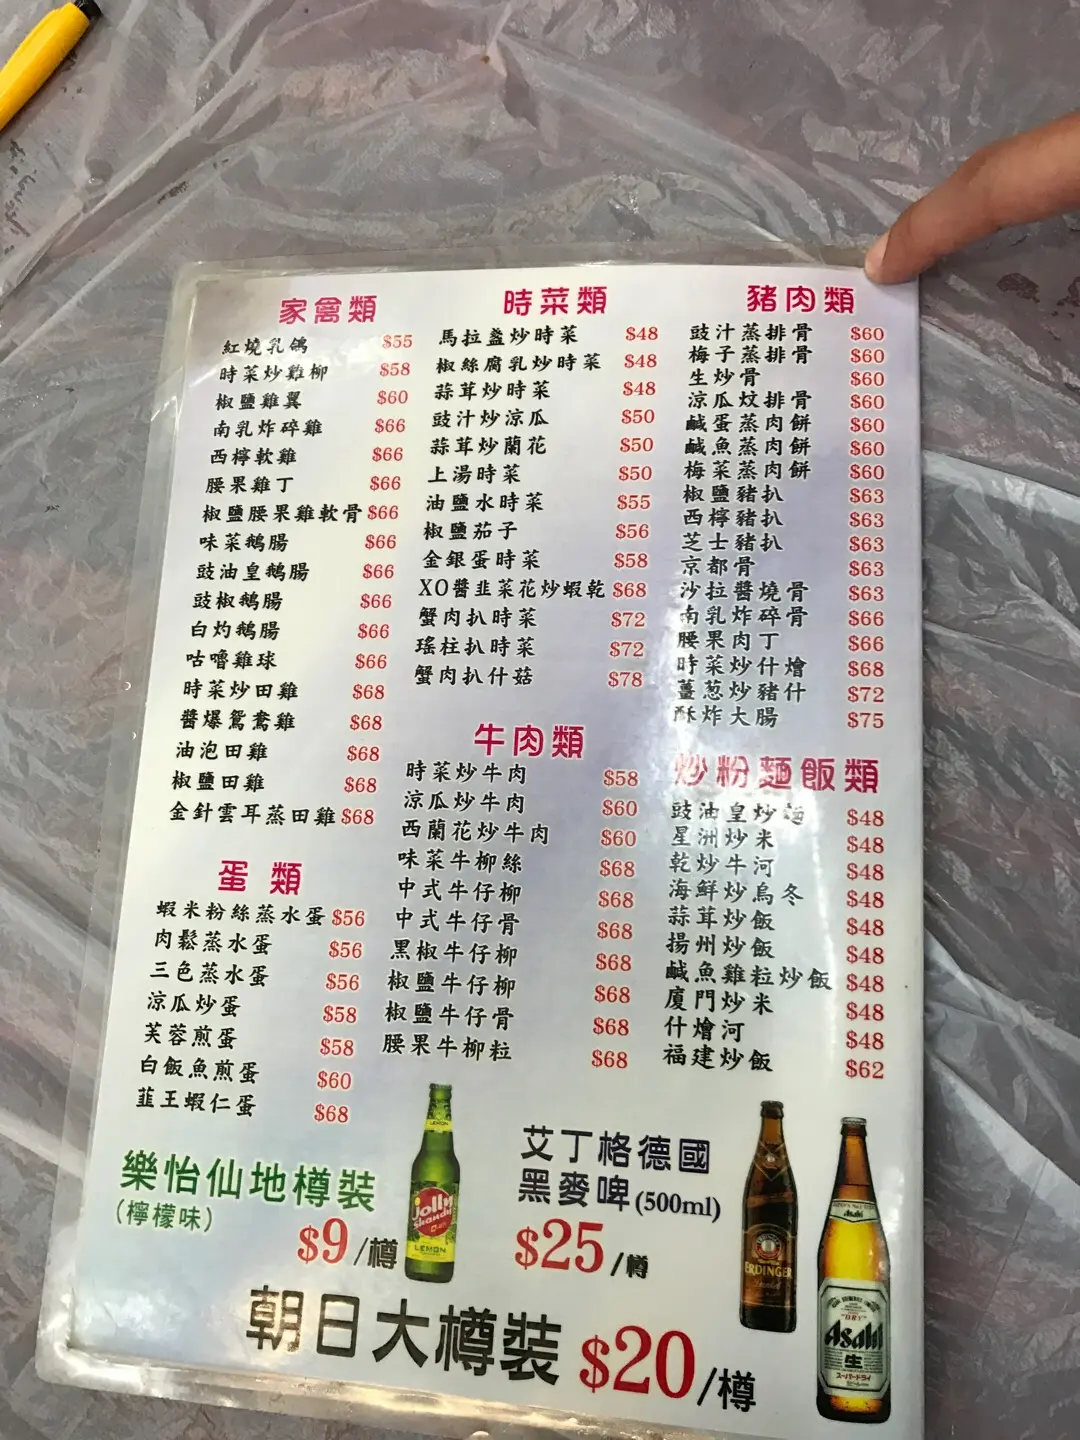 家禽類
紅燒乳鴿 $55
時菜炒雞柳 $58
椒鹽雞翼 $60
南乳炸碎雞 $66
西檸軟雞 $66
腰果雞丁 $66
椒鹽腰果雞軟骨 $66
味菜鵝腸 $66
豉油皇鵝腸 $66
豉椒鵝腸 $66
白灼鵝腸 $66
咕嚕雞球 $66
時菜炒田雞 $68
醬爆鴛鴦雞 $68
油泡田雞 $68
椒鹽田雞 $68
金針雲耳蒸田雞 $68
蛋類
蝦米粉絲蒸水蛋 $56
肉鬆蒸水蛋 $56
三色蒸水蛋 $56
涼瓜炒蛋 $58
芙蓉煎蛋 $58
白飯魚煎蛋 $60
韮王蝦仁蛋 $68
時菜類
馬拉盞炒時菜 $48
椒絲腐乳炒時菜 $48
蒜茸炒時菜 $48
豉汁炒涼瓜 $50
蒜茸炒蘭花 $50
上湯時菜 $50
油鹽水時菜 $55
椒鹽茄子 $56
金銀蛋時菜 $58
XO醬韮菜花炒蝦乾 $68
蟹肉扒時菜 $72
瑤柱扒時菜 $72
蟹肉扒什菇 $78
牛肉類
時菜炒牛肉 $58
涼瓜炒牛肉 $60
西蘭花炒牛肉 $60
味菜牛柳絲 $68
中式牛仔柳 $68
中式牛仔骨 $68
黑椒牛仔柳 $68
椒鹽牛仔柳 $68
椒鹽牛仔骨 $68
腰果牛柳粒 $68
豬肉類
豉汁蒸排骨 $60
梅子蒸排骨 $60
生炒骨 $60
涼瓜炆排骨 $60
鹹蛋蒸肉餅 $60
鹹魚蒸肉餅 $60
梅菜蒸肉餅 $60
椒鹽豬扒 $63
西檸豬扒 $63
芝士豬扒 $63
京都骨 $63
沙拉醬燒骨 $63
南乳炸碎骨 $66
腰果肉丁 $66
時菜炒什燴 $68
薑葱炒豬什 $72
酥炸大腸 $75
炒粉麵飯類
豉油皇炒麵 $48
星洲炒米 $48
乾炒牛河 $48
海鮮炒烏冬 $48
蒜茸炒飯 $48
揚州炒飯 $48
鹹魚雞粒炒飯 $48
廈門炒米 $48
什燴河 $48
福建炒飯 $62
樂怡仙地樽裝
(檸檬味)
$9/樽
LEMON
Jolly
Shandy
LEMON
艾丁格德國
黑麥啤(500ml)
$25/樽
ERDINGER
朝日大樽裝 $20/樽
Asahi
"DRY"
Asahi
生
スーパードライ